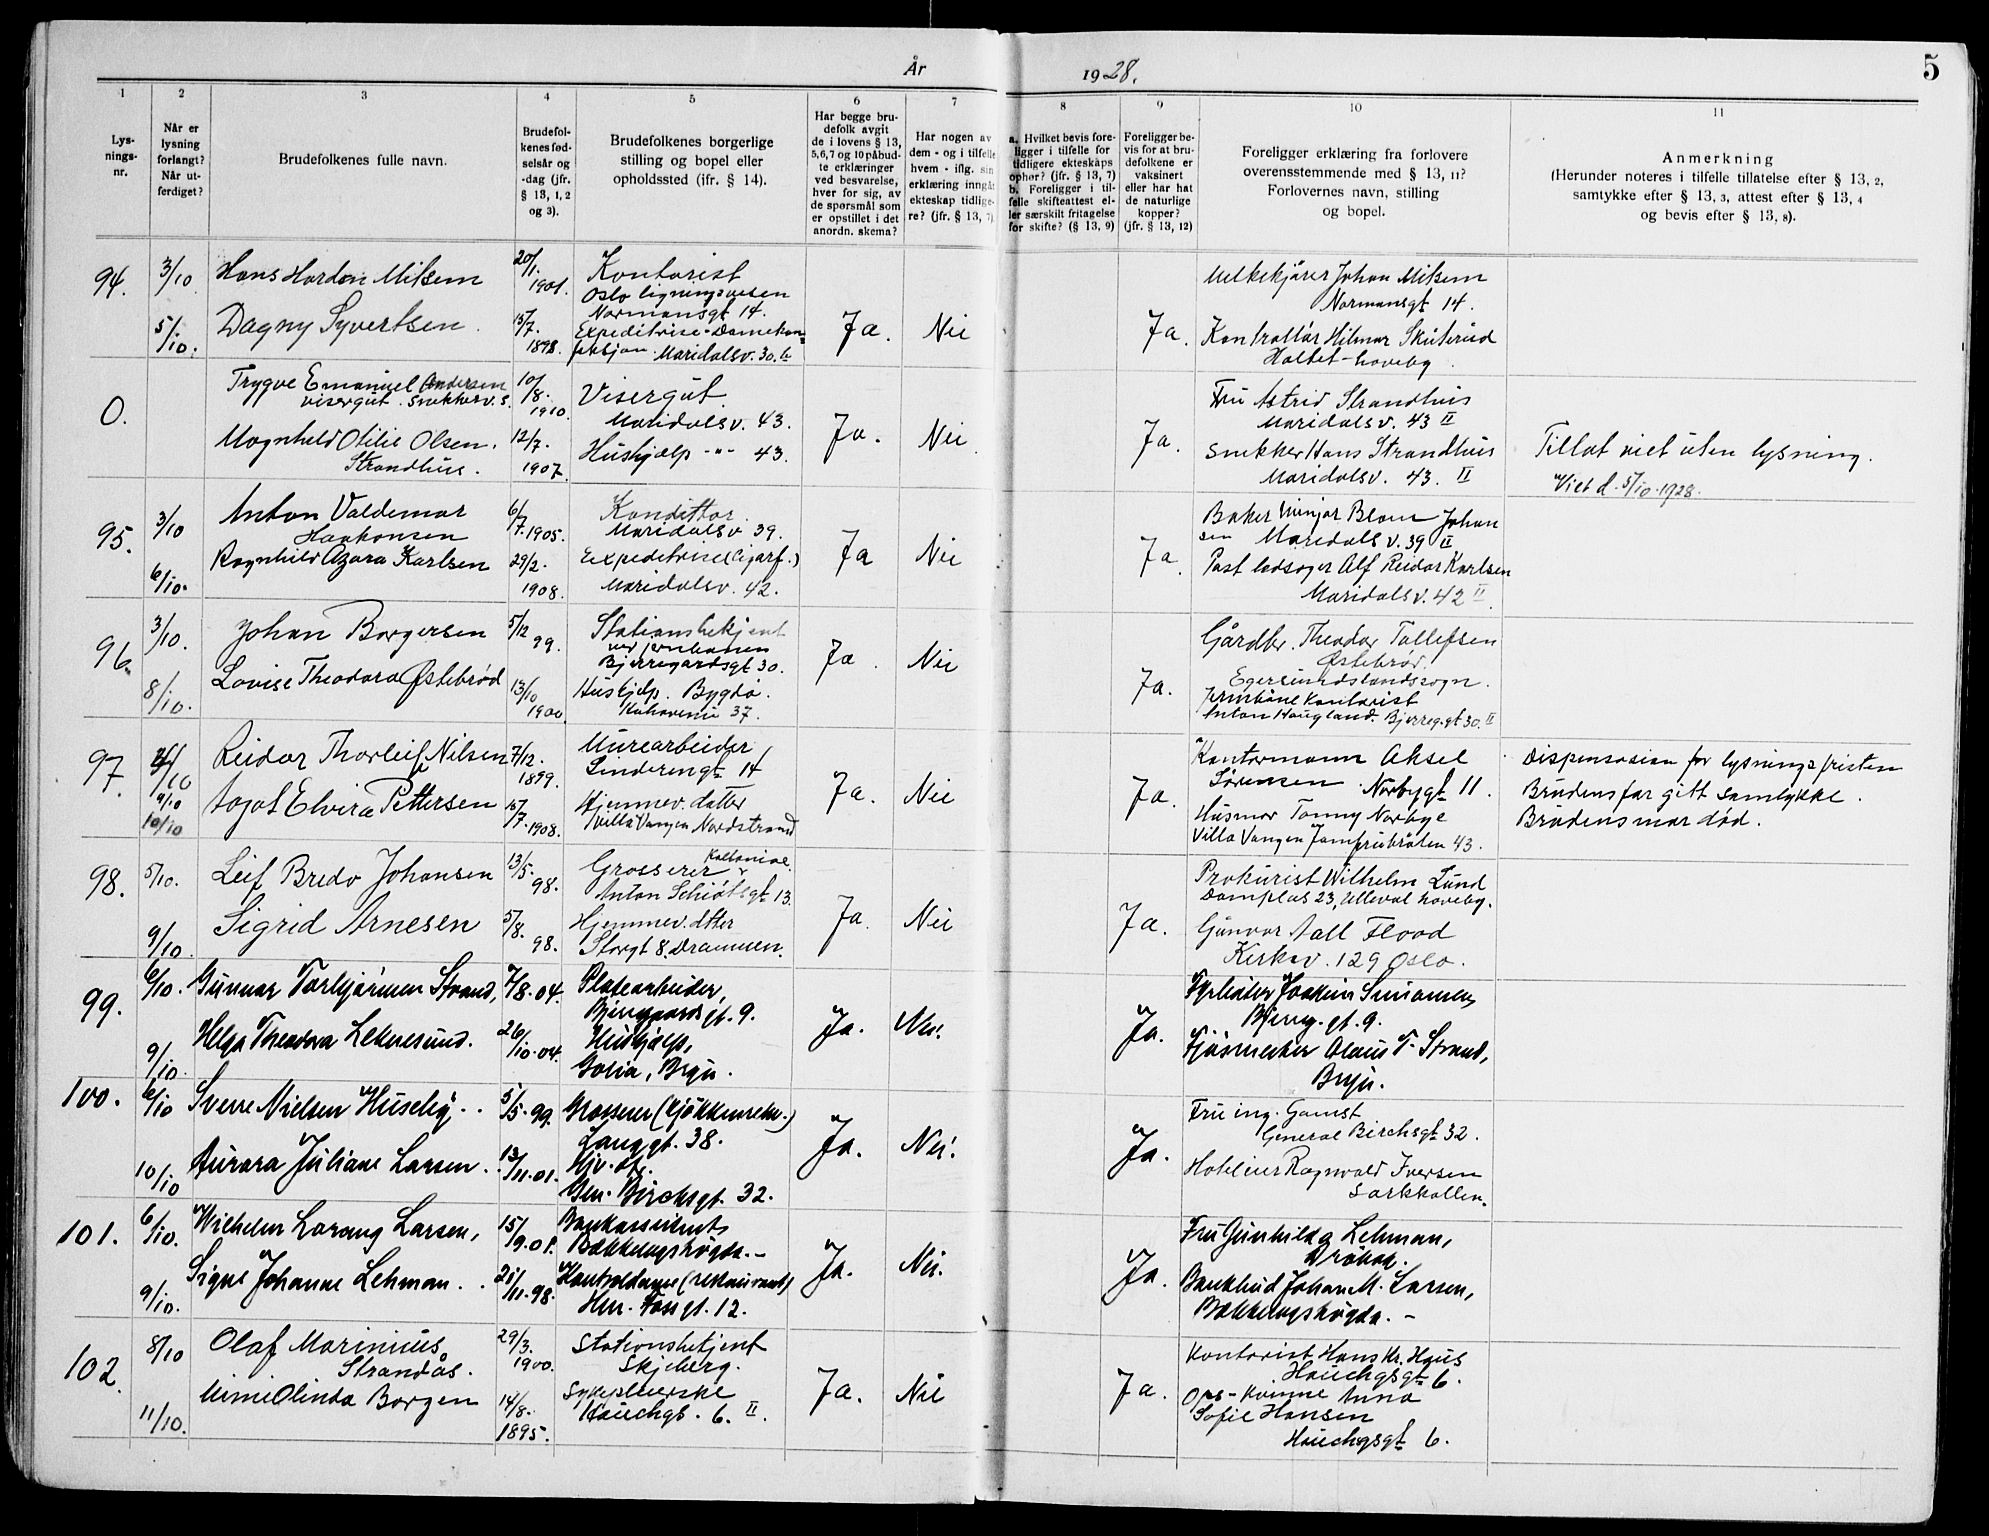 År 1928.
5
1
Lys-
nings-
nr.
2
Når er
lysning
forlangt?
Når ut-
ferdiget?
3
Brudefolkenes fulle navn.
4
Brudefol-
kenes fød-
selsår og
-dag (jfr.
§ 13, 1, 2
og 3).
5
Brudefolkenes borgerlige
stilling og bopel eller
opholdssted (ifr. § 14).
6
Har begge bru-
defolk avgit
de i lovens § 13,
5,6,7 og 10 påbud-
te erklæringer
ved besvarelse,
hver for sig, av
de spørsmål som
er opstillet i det
anordn. skema?
7
Har nogen av
dem - og i tilfelle
hvem - iflg. sin
erklæring inngåt
ekteskap tidlige-
re? (jfr. § 13, 7)
8
a. Hvilket bevis fore-
ligger i tilfelle for
tidligere ekteskaps
ophør? (jfr. § 13, 7)
b. Foreligger i til-
felle skifteattest el-
ler særskilt fritagelse
for skifte? (§ 13, 9)
9
Foreligger be-
vis for at bru-
defolkene er
vaksinert
eller har hat
de naturlige
kopper?
(jfr. § 13, 12)
10
Foreligger erklæring fra forlovere
overensstemmende med § 13, 11?
Forlovernes navn, stilling
og bopel.
11
Anmerkning
(Herunder noteres i tilfelle tillatelse efter § 13, 2,
samtykke efter § 13, 3, attest efter § 13, 4
og bevis efter § 13, 8).
94.
3/10
5/10.
Hans Hardon Mitsem
Dagny Syvertsen.
20/1. 1901.
15/7. 1898.
Kontorist
Oslo ligningsvesen
Normansgt 14.
Expeditrise - Damekon=
feksjon. Maridalsv. 30. b
Ja.
Nei
Ja.
Melkekjører Johan Mitsem
Normansgt 14.
Kontrollør Hilmar Skuterud
Holtet - haveby.
0.
Trygve Emanuel Andersen
visergut. snekkerv. s.
Magnhild Otilie Olsen.
Strandhus.
10/8. 1910.
12/7. 1907.
Visergut.
Maridalsv. 43.
Hushjælp -"- 43.
Ja.
Nei
Ja.
Fru Astrid Strandhus
Maridalsv. 43 II
Snekker Hans Strandhus
Maridalsv. 43. II
Tillat viet uten lysning.
Viet d. 5/10.1928.
95.
3/10
6/10.
Anton Valdemar
Haakonsen
Ragnhild Azora Karlsen
6/7.1905.
29/2. 1908.
Kondittor.
Maridalsv 39.
Expeditrise (Cigarf.)
Maridalsv. 42.
Ja
Nei
Ja.
Baker Minjar Blom Johan
sen Maridalsv. 39 II
Post ledsager Alf Reidar Karlsen
Maridalsv. 42 II.
96.
3/10.
8/10.
Johan Borgersen
Lovise Theodora Østebrød
5/12 99.
13/10 1900.
Stationsbetjent
ved jernbanen
Bjerregårdsgt 30.
Hushjelp. Bygdø.
37.
Ja.
Nei
Ja.
Gårdbr. Theodor Tollefsen
Østebrød.
Egersundslandssogn.
Jernbane Kontorist
Anton Haugland. Bjerreg.gt 30. II
97.
4/10
9/10
10/10
Reidar Thorleif Nilsen
Aagot Elvira Pettersen
7/12. 1899.
15/7.1908.
Murearbeider
Sinderengt 14
Hjemmev. datter
Villa Vangen Nordstrand
Ja.
Nei
Ja.
Kontormann Aksel
Sørensen. Norbygt 11.
Husmor Tonny Norbye
Villa Vangen Jomfrubråten 43.
Dispensasion for lysningsfristen
Brudens far gitt samtykke.
Brudens mor död.
98.
5/10.
9/10.
Leif Bredo Johansen
Sigrid Arnesen
13/5. 98.
5/8. 98.
Grosserer Kolonial.
Anton Schiøtsgt 13.
Hjemmev. dtter
Storgt 8. Drammen.
Ja.
Nei
Ja.
Prokurist Wilhelm Lund
Damplas 23, Ulleval haveby.
Gunvor Aall Flood
Kirkev. 129 Oslo.
99.
6/10.
9/10.
Gunnar Torbjörnsen Strand,
Helga Theodora Leknesund.
7/8.04.
26/10.04.
Platearbeider,
Bjerregaards gt. 9.
Hushjælp,
Bryn.
Ja.
Nei.
Ja.
Fyrbøter Joakim Simonsen,
Bjerreg. gt. 9.
Olaus T. Strand,
Bryn.
100.
6/10
10/10
Sverre Nielsen Huseby..
Aurora Juliane Larsen..
5/5.99.
13/11.01.
Grosserer (kjøkkenrekv.)
Langgt. 38.
Hjv. dt.
Gen. Birchsgt. 32.
Ja.
Nei.
Ja.
Fru ing. Gamst
General Birchsgt 32.
Hotelleier Ragnvald Iversen
Larkkollen.
101.
6/10.
9/10.
Wilhelm Lorang Larsen,
Signe Johanne Lehman..
15/9.01.
21/11.98.
Bankassistent
Bækkelagshøgda.-
Kontordame (restaurant)
Hm. Fossgt. 12.
Ja.
Nei.
Ja.
Fru Gunhilda Lehman,
Drøbak.
Bankbud Johan M. Larsen,
Bækkelagshøgda.-
102.
8/10
11/10.
Olaf Marinius
Strandås.
Mimi Olinda Borgen
29/3. 1900.
14/8. 1895.
Stationsbetjent
Skjeberg.
Sykepleierske
Hauchgs. 6. II.
Ja.
Nei
Ja.
Kontorist Hans Kr. Haus
Hauchgsgt 6.
Ops-kvinne Anna
Sofie Hansen
Hauchgsgt 6.